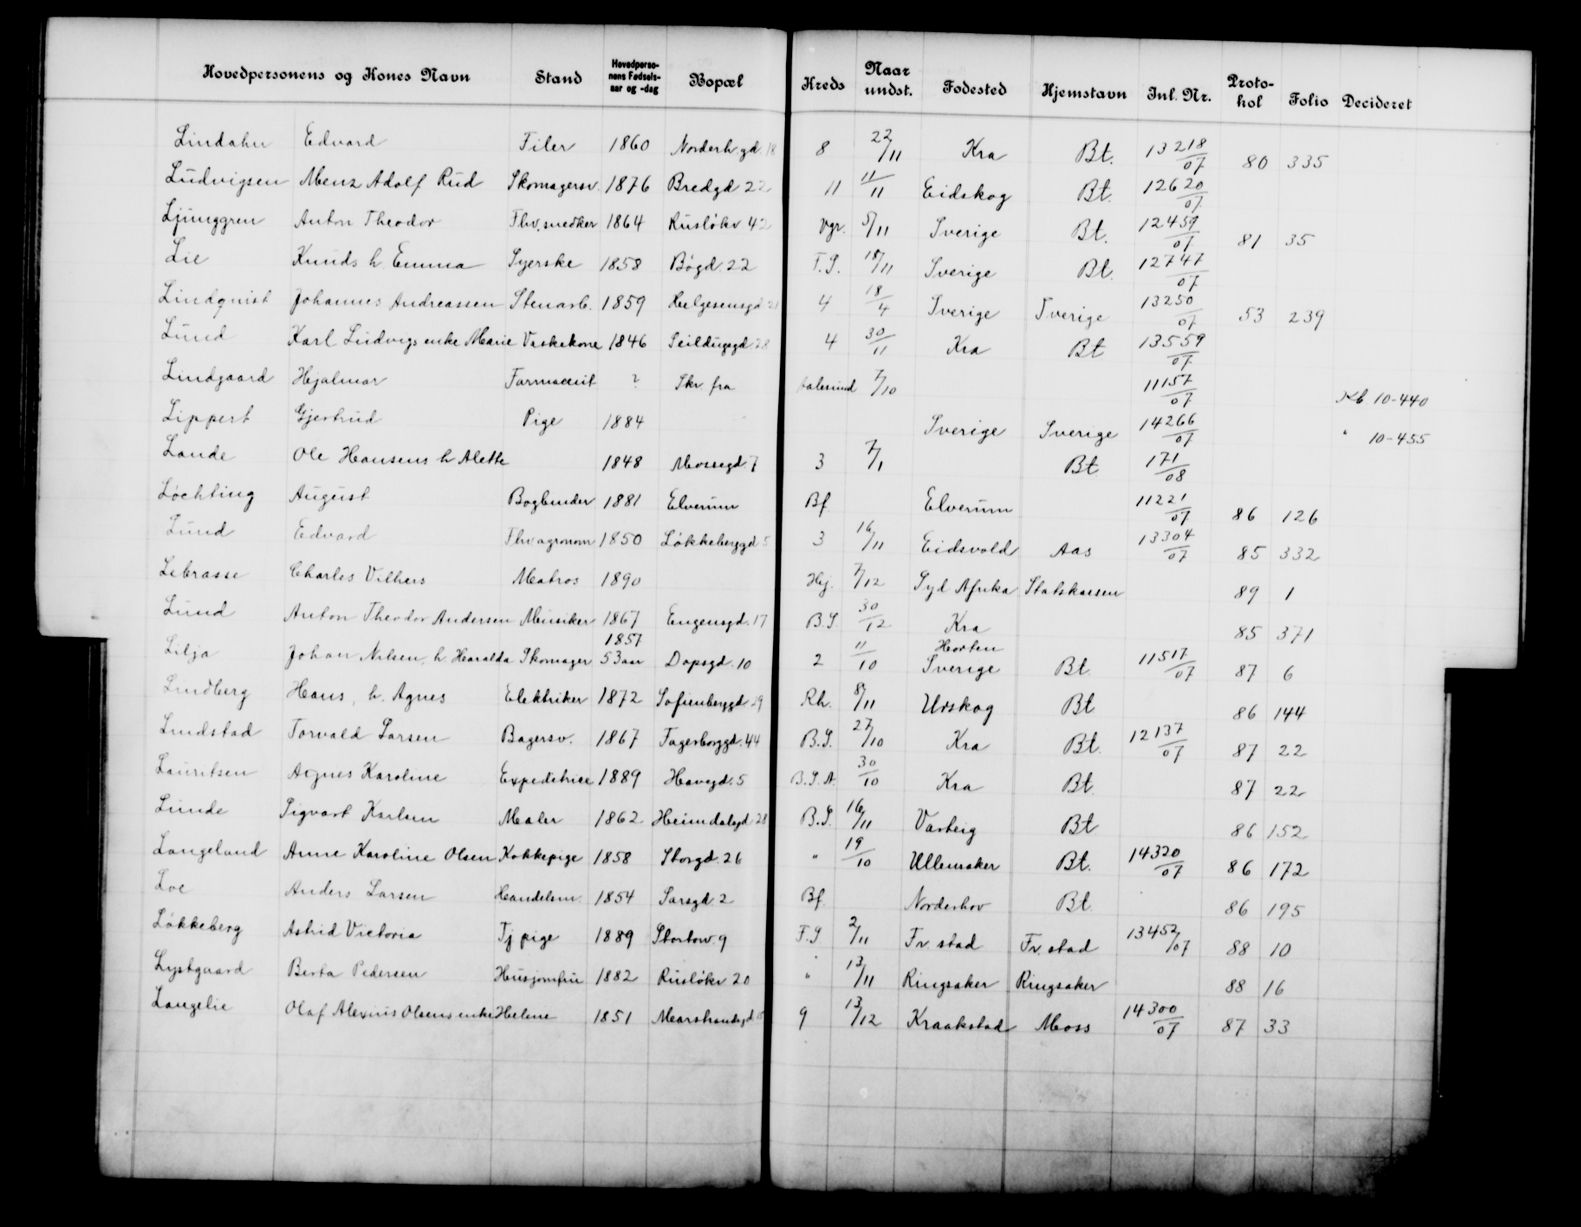 Hovedpersonens og Kones Navn Stand Hovedpersonens Fødselsaar og -dag Bopæl Kreds Naar undst. Fødested Hjemstavn Jnl. Nr. Protokol Folio Decideret
Lindahn Edvard Filer 1860 Norderh.gd. 18 8 22/11 Kra Bt. 13218/07 80 335
Ludvigsen Menz Adolf Rud Skomagersv. 1876 Bredgd 22 11 11/11 Eidskog Bt. 12620/07
Ljunggren Anton Theodor Fhv. snedker 1864 Rusløkv 42 Vgr. 5/11 Sverige Bt. 12459/07 81 35
Lie Knuds h. Emma Syerske 1858 Bögd. 22 F.S. 18/11 Sverige Bt. 12747/07
Lindquist Johannes Andreassen Stenarb. 1859 Helgesensgd 4 18/4 Sverige Sverige 13250/07 53 239
Lund Karl Ludvigs enke Marie Vaskekone 1846 Seildugsgd 28 4 30/11 Kra Bt 13559/07
Lindgaard Hjalmar Farmaceut ? Skr. fra Aalesund 7/10 11157/07 Kb 10-440
Lippert Gjertrud Pige 1884 Sverige Sverige 14266/07 " 10-455
Lande Ole Hansens h Alette 1848 Mossegd. 7 3 7/1 Bt. 171/08
Løchting August Bogbinder 1881 Elverum Bf. Elverum 11221/07 86 126
Lund Edvard Fhv agronom 1850 Løkkeberggd 5 3 16/11 Eidsvold Aas 13304/07 85 332
Librasse Charles Vilhers Matros 1890 Hej. 7/12 Syd Afrika Statskassen 89 1
Lund Anton Theodor Andersen Musiker 1867 Eugensgd. 17 B.S. 30/12 Kra 85 371
Lilja Johan Nilsen, h Haralda Skomager 1857 53 aar Dopsgd. 10 2 11/10 Horten Sverige Bt. 11517/07 87 6
Lindberg Hans, h. Agnes Elektriker 1872 Sofienberggd 29 Rh. 8/11 Urskog Bt 86 144
Lindstad Torvald Larsen Bagersv. 1867 Fagerborggd. 44 B.S. 27/10 Kra Bt. 12137/07 87 22
Lauritsen Agnes Karoline Expeditrice 1889 Havegd. 5 B.S.A. 30/10 Kra Bt. 87 22
Lunde Sigvart Karlsen Maler 1862 Heimdalsgd 28 B.S. 16/11 Varteig Bt 86 152
Langeland Anne Karoline Olsen Kokkepige 1858 Storgd. 26 " 19/10 Ullensaker Bt. 14320/07 86 172
Loe Anders Larsen Handelsm. 1854 Sarsgd. 2 Bf. Norderhov Bt. 86 195
Løkkeberg Astrid Victoria Tj pige 1889 Stortorv. 9 F.S 2/11 Fr. stad Fr. stad 13452/07 88 10
Lystgaard Berta Pedersen Husjomfru 1882 Rusløkv 20 " 13/11 Ringsaker Ringsaker 88 16
Langelie Olaf Alexius Olsens enke Helene 1851 Marstrandgd 9 13/12 Kraakstad Moss 14300/07 87 33